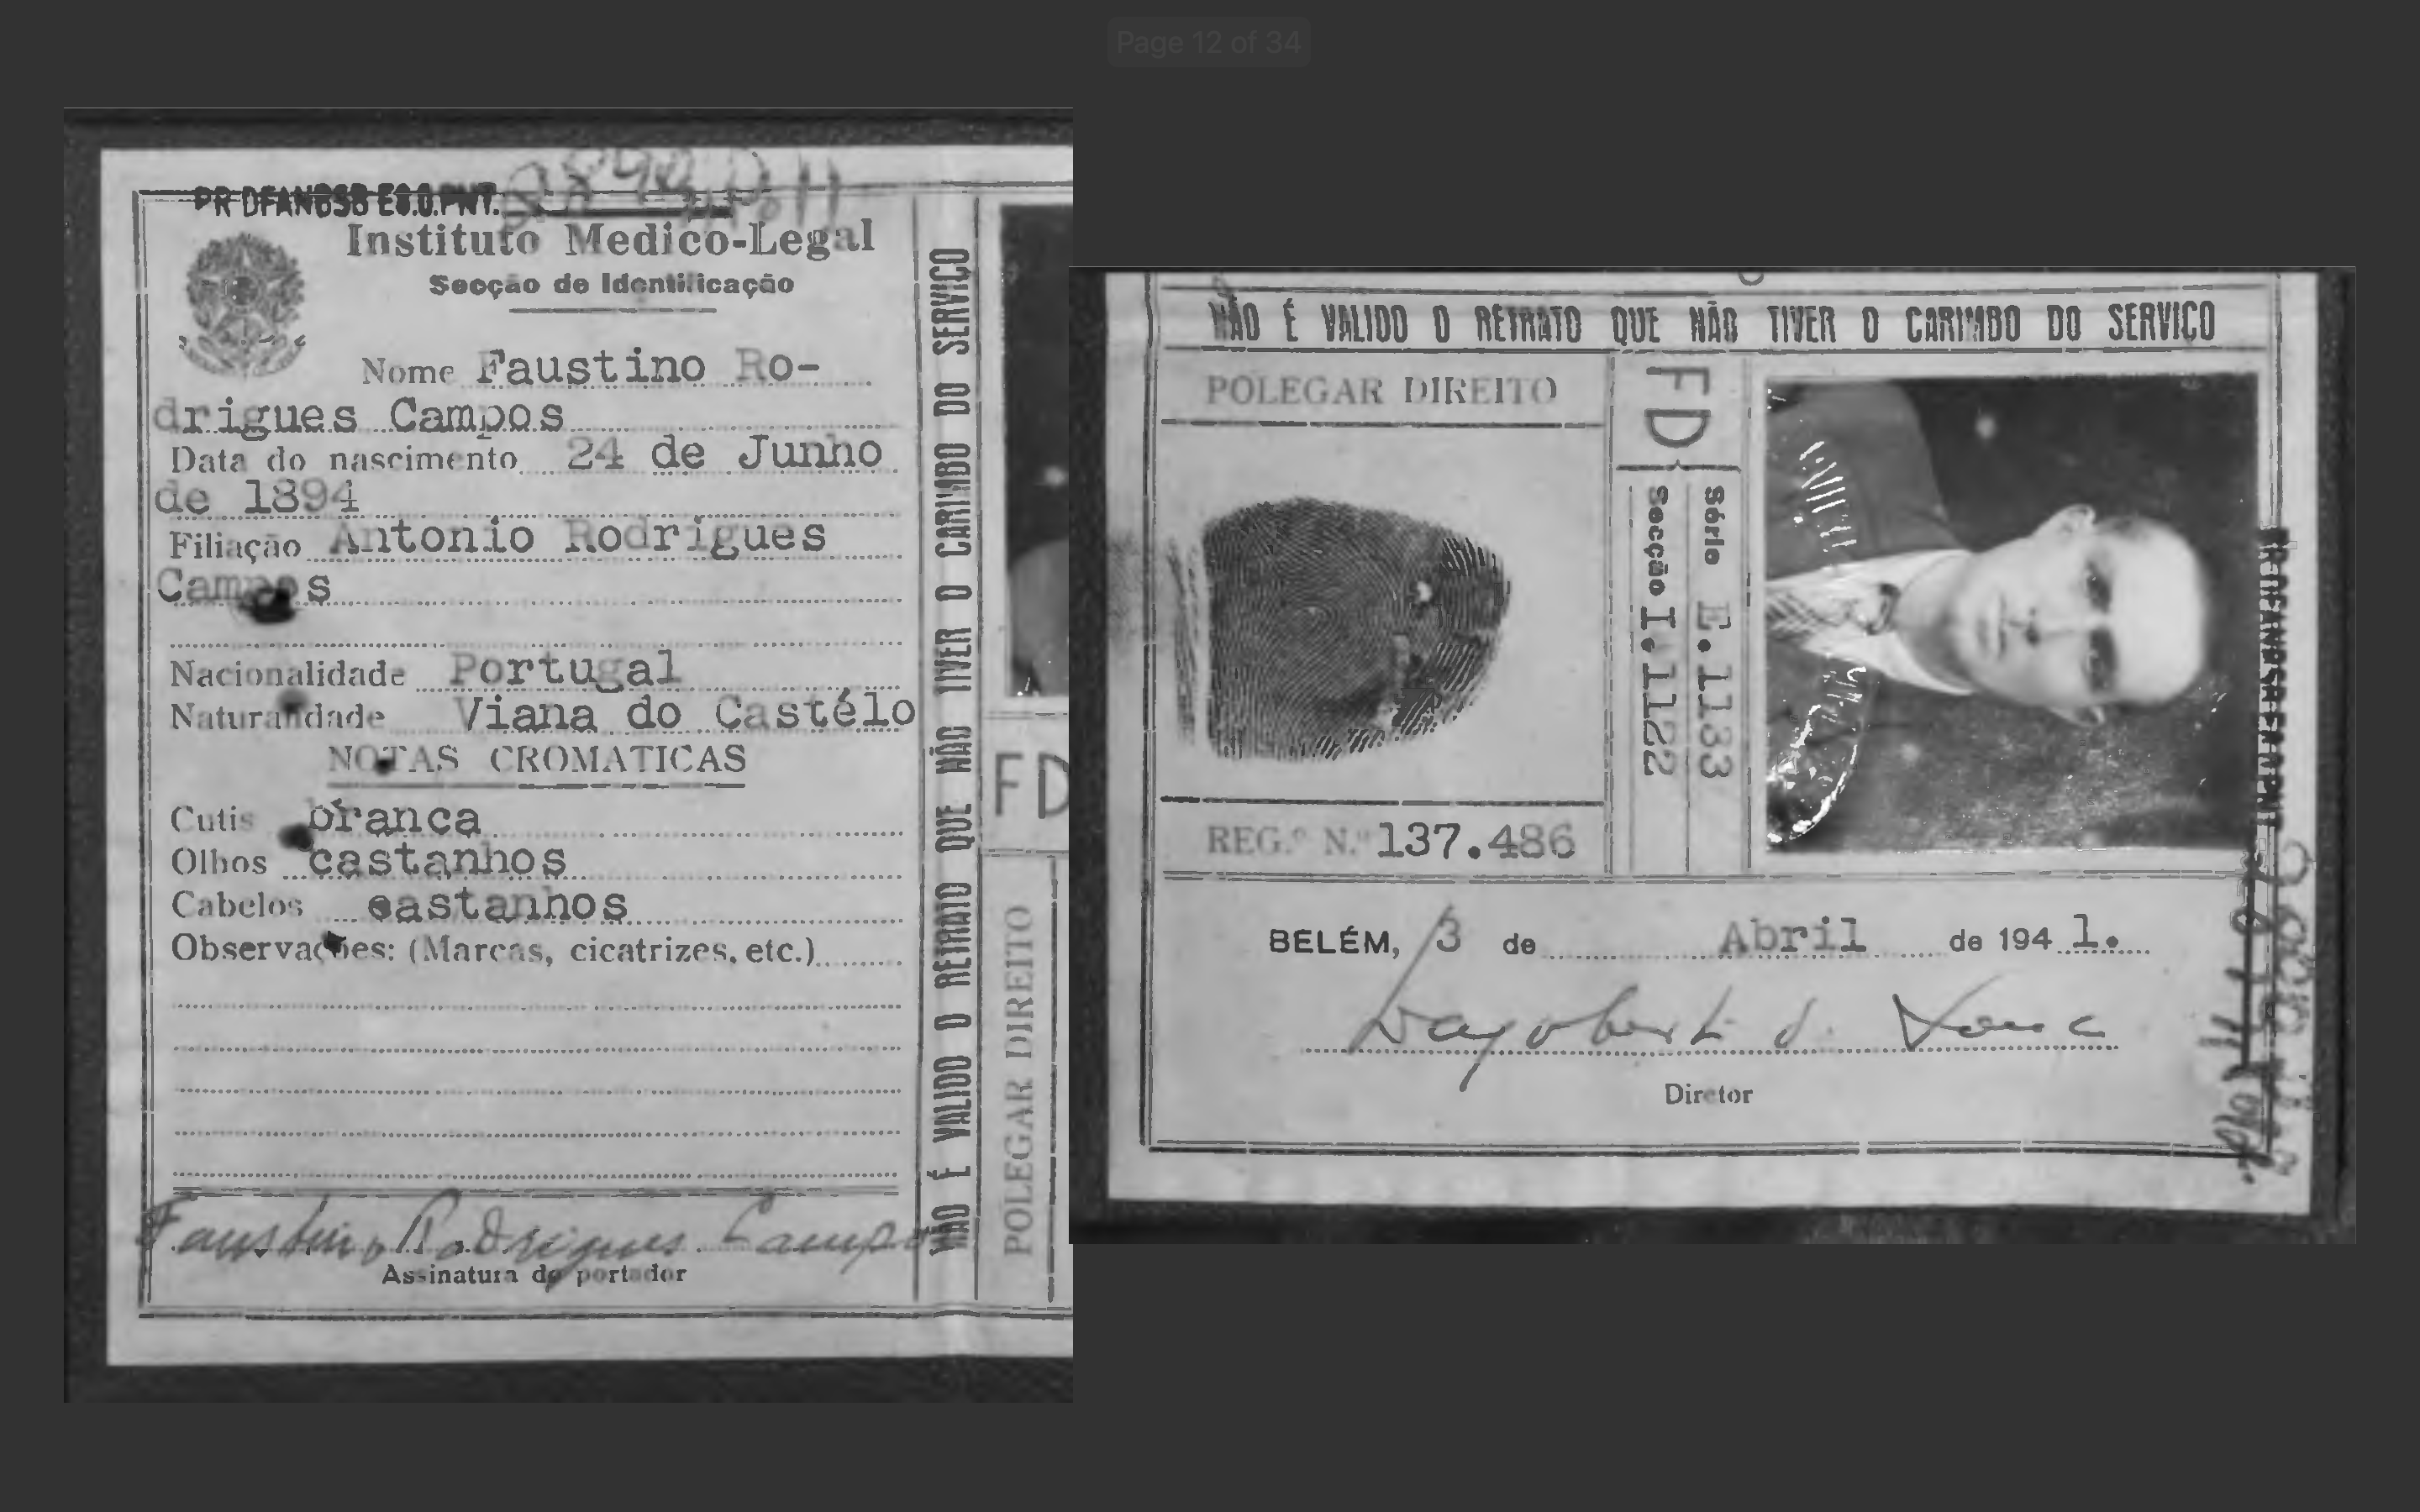 Page 12 of 34
PR DFANBSB E0.0.PNT.
Instituto Medico-Legal
Secção de Identificação
Nome Faustino Ro-
drigues Campos
Data do nascimento 24 de Junho
de 1894
Filiação Antonio Rodrigues
Campos
Nacionalidade Portugal
Naturalidade Viana do Castélo
NOTAS CROMATICAS
Cutis branca
Olhos castanhos
Cabelos castanhos
Observações: (Marcas, cicatrizes, etc.)
Faustino Rodrigues Campos
Assinatura do portador
NÃO É VALIDO O RETRATO QUE NÃO TIVER O CARIMBO DO SERVIÇO
FD
POLEGAR DIREITO
NÃO É VALIDO O RETRATO QUE NÃO TIVER O CARIMBO DO SERVIÇO
POLEGAR DIREITO
FD
Série E.1133
Secção I.1122
REG.º N.º 137.486
BELÉM, 3 de Abril de 1941.
Diretor